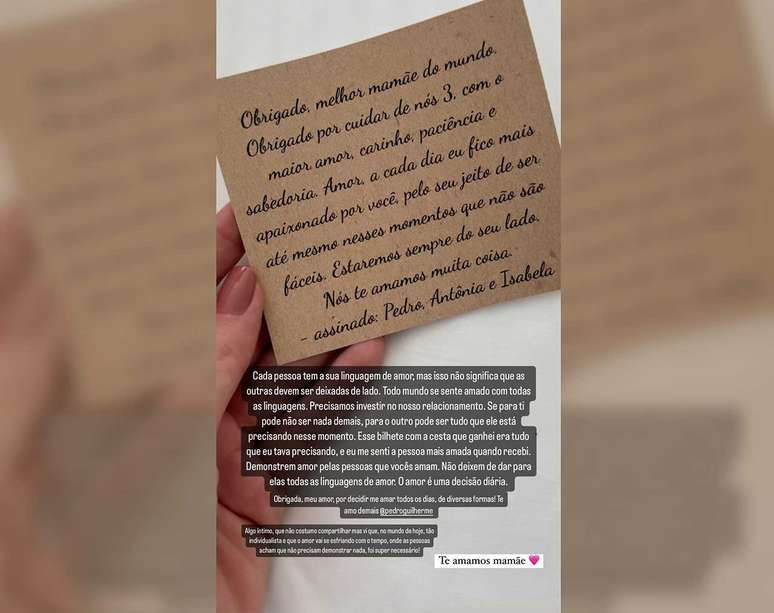 Obrigado, melhor mamãe do mundo.
Obrigado por cuidar de nós 3, com o
maior amor, carinho, paciência e
sabedoria. Amor, a cada dia eu fico mais
apaixonado por você, pelo seu jeito de ser
até mesmo nesses momentos que não são
fáceis. Estaremos sempre do seu lado.
Nós te amamos muita coisa.
- assinado: Pedro, Antônia e Isabela
Cada pessoa tem a sua linguagem de amor, mas isso não significa que as
outras devem ser deixadas de lado. Todo mundo se sente amado com todas
as linguagens. Precisamos investir no nosso relacionamento. Se para ti
pode não ser nada demais, para o outro pode ser tudo que ele está
precisando nesse momento. Esse bilhete com a cesta que ganhei era tudo
que eu tava precisando, e eu me senti a pessoa mais amada quando recebi.
Demonstrem amor pelas pessoas que vocês amam. Não deixem de dar para
elas todas as linguagens de amor. O amor é uma decisão diária.
Obrigada, meu amor, por decidir me amar todos os dias, de diversas formas! Te
amo demais @pedroguilherme
Algo íntimo, que não costumo compartilhar mas vi que, no mundo de hoje, tão
individualista e que o amor vai se esfriando com o tempo, onde as pessoas
acham que não precisam demonstrar nada, foi super necessário!
Te amamos mamãe 💖